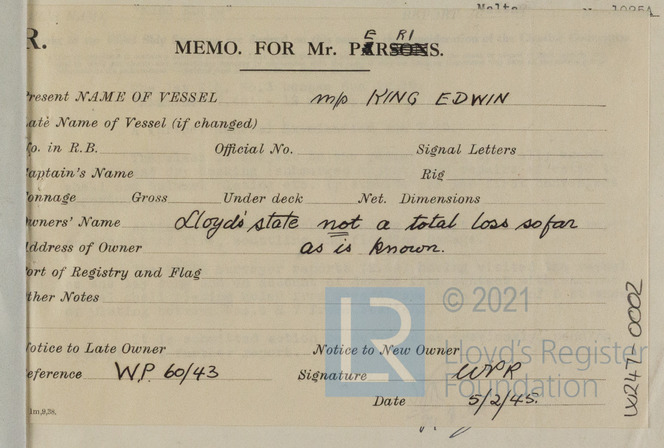 Malta
R.
MEMO. FOR Mr. PARSONS.
E RI
Present NAME OF VESSEL m/v KING EDWIN
Late Name of Vessel (if changed)
No. in R.B. Official No. Signal Letters
Captain's Name Rig
Tonnage Gross Under deck Net. Dimensions
Owners' Name Lloyd's state not a total loss so far
Address of Owner as is known.
Port of Registry and Flag
Other Notes
© 2021
LR
Lloyd's Register
Foundation
Notice to Late Owner Notice to New Owner
Reference W.P. 60/43 Signature WPR
Date 5/2/45.
1m,9,38.
WR247-0002